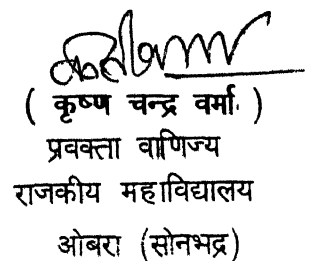 ( कृष्ण चन्द्र वर्मा )
प्रवक्ता वाणिज्य
राजकीय महाविद्यालय
ओबरा (सोनभद्र)